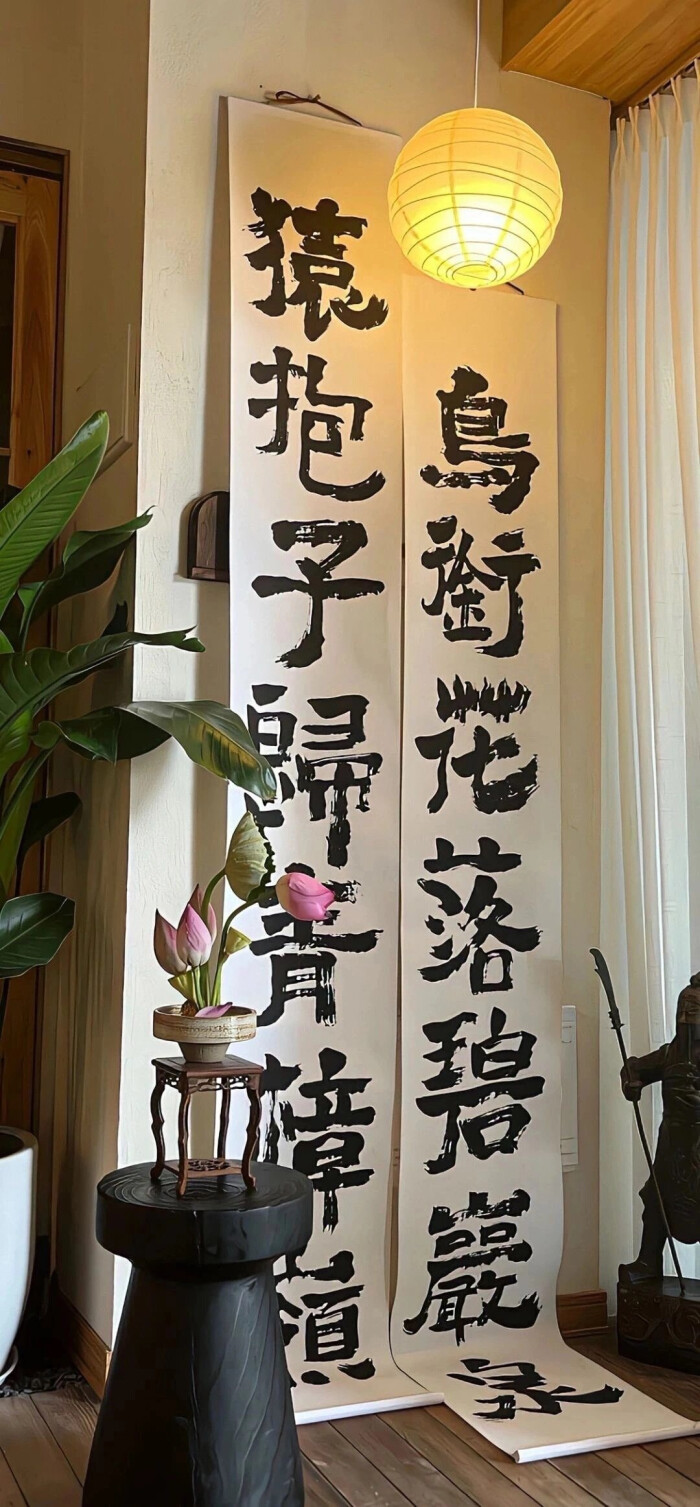 鳥銜花落碧巖泉
猿抱子歸青樟嶺